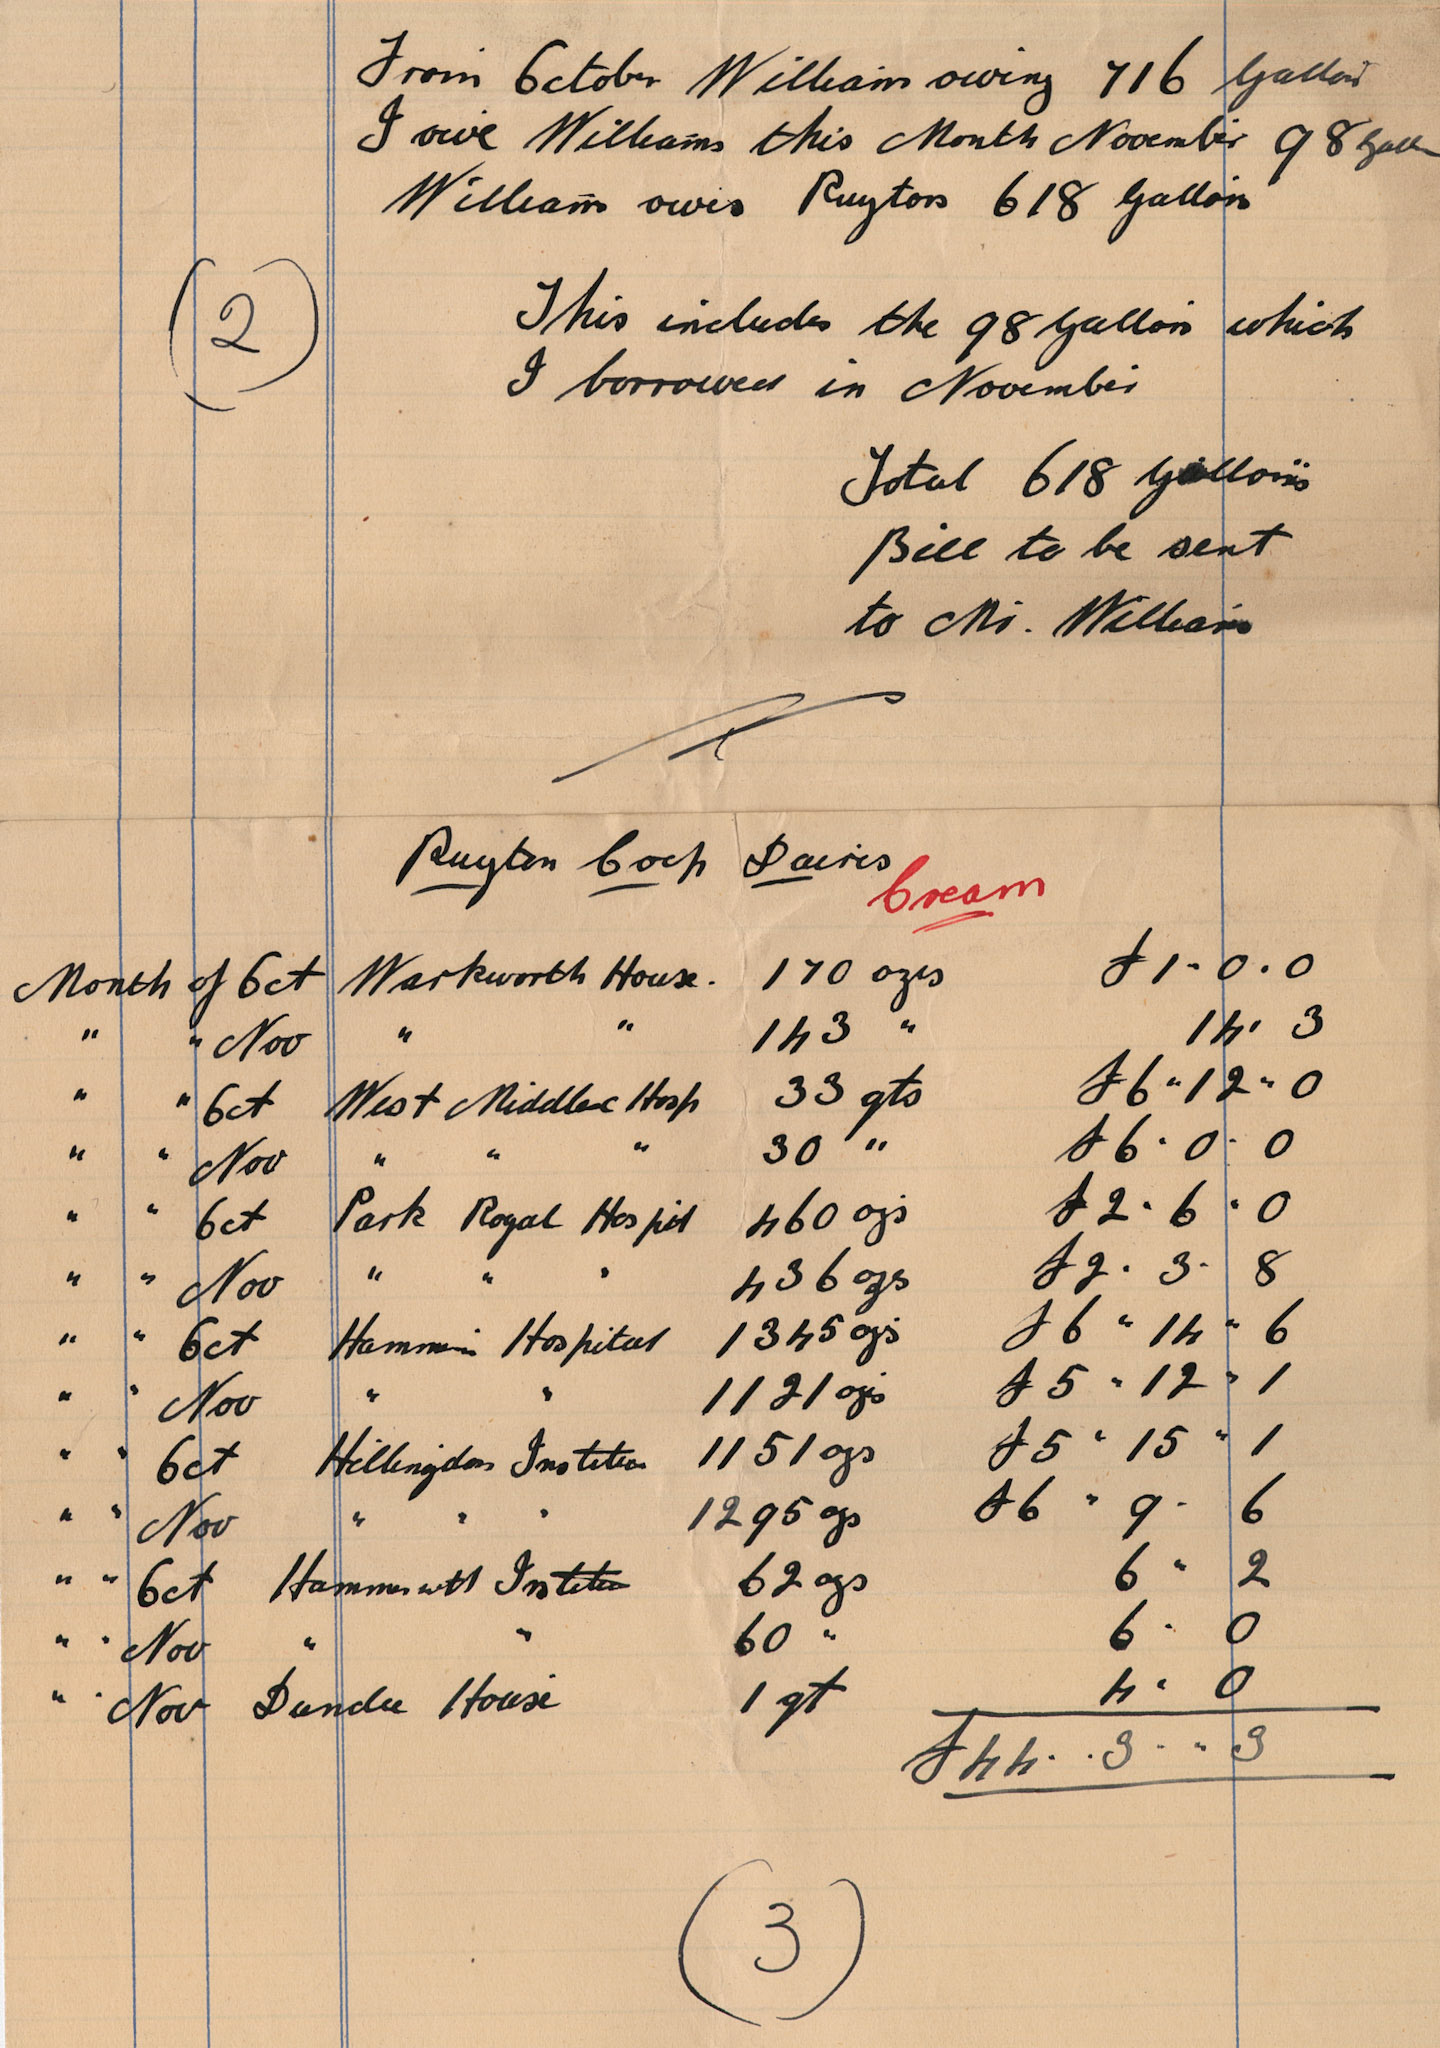 From October Williams owing 716 Gallons
I owe Williams this Month November 98 Galls
Williams owes Ruyton 618 Gallons
(2)
This includes the 98 Gallons which
I borrowed in November
Total 618 Gallons
Bill to be sent
to Mr. Williams
Ruyton Coop Dairies
Cream
Month of Oct Warkworth House. 170 ozs £1-0.0
" " Nov " " 143 " 14. 3
" " Oct West Middlesex Hosp 33 qts £6"12"0
" " Nov " " " 30 " £6.0.0
" " Oct Park Royal Hospit 460 ozs £2.6.0
" " Nov " " " 436 ozs £2.3.8
" " Oct Hammers Hospital 1345 ozs £6"14"6
" " Nov " " 1121 ozs £5"12"1
" " Oct Hillingdon Institution 1151 ozs £5"15"1
" " Nov " " " 1295 ozs £6"9.6
" " Oct Hammersmith Institution 62 ozs 6"2
" " Nov " " 60 " 6.0
" " Nov Dundee House 1 qt 4.0
£44..3."3
(3)